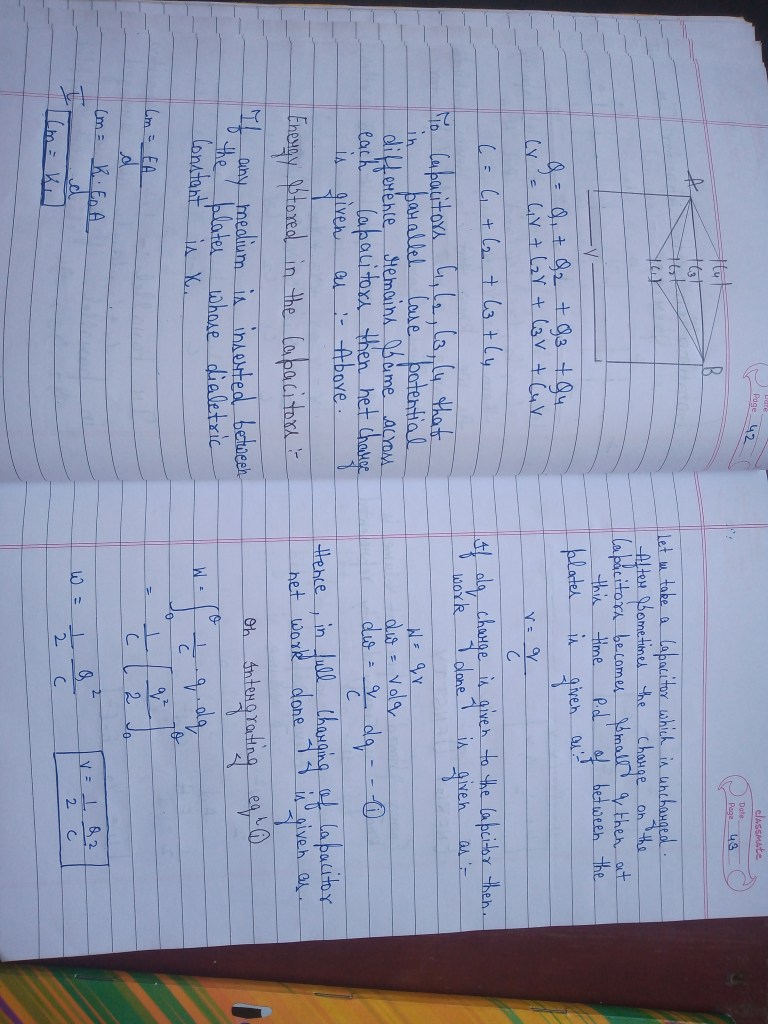 Date
Page 42
A
B
C4
C3
C2
C1
V
Q = Q1 + Q2 + Q3 + Q4
CV = C1V + C2V + C3V + C4V
C = C1 + C2 + C3 + C4
To Capacitors C1, C2, C3, C4 that
in parallel Case potential
difference remains Same across
each Capacitors then net charge
is given as :- Above.
Energy Stored in the Capacitors :-
If any medium is inserted between
the plates whose dialetric
Constant is K.
Cm = EA
d
Cm = K. E0 A
d
classmate
Date
Page 43
Let us take a Capacitor which is uncharged.
After Sometimes the charge on the
Capacitors becomes Small q then at
this time p.d of between the
plates is given as :-
V = q
C
If dq charge is given to the Capcitor then.
work done is given as :-
W = qv
dw = v dq
dw = q dq - - - ①
C
Hence, in full charging of Capacitor
net work done is given as.
On Intergrating eqn ①
W = ∫0Q 1 . q . dq
C
= 1 [ q2 ]0Q
C 2
W = 1 Q2
2 C
V = 1 Q2
2 C